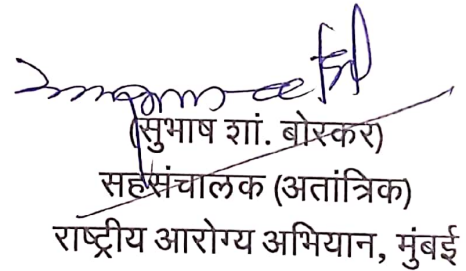 (सुभाष शां. बोरकर)
सहसंचालक (अतांत्रिक)
राष्ट्रीय आरोग्य अभियान, मुंबई